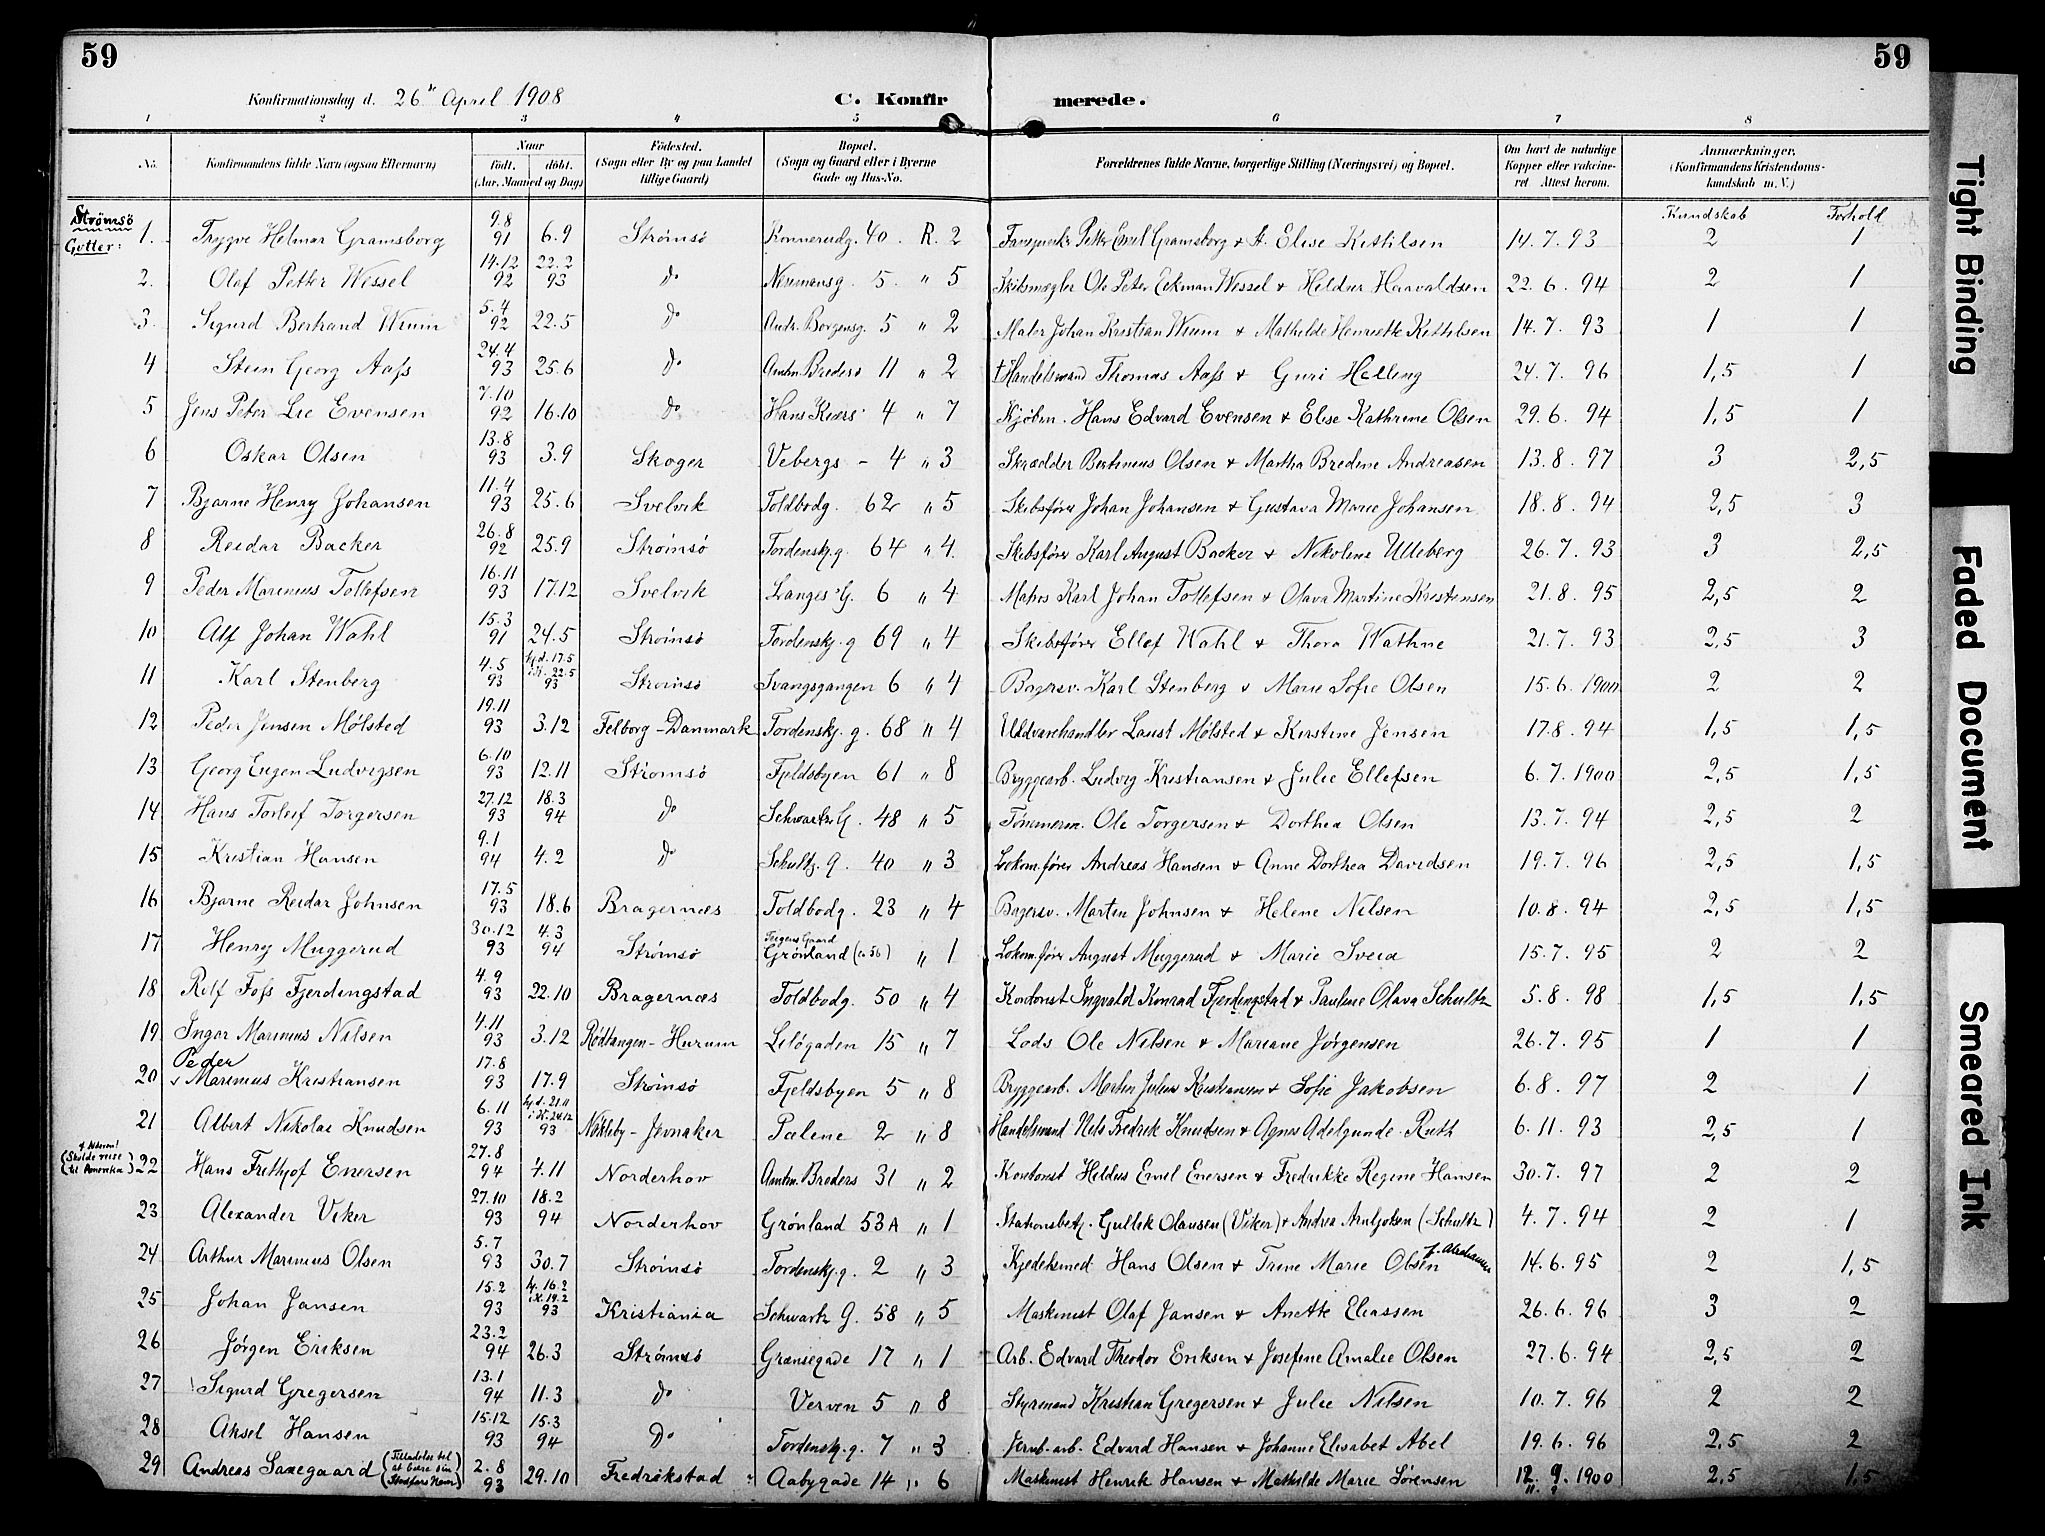 59
59
Konfirmationsdag d. 26de April 1908
C. Konfirmerede.
1 2 3 4 5 6 7 8
No. Konfirmandens fulde Navn (ogsaa Efternavn) Naar født. døbt. (Aar, Maaned og Dag) Fødested. (Sogn eller By og paa Landet tillige Gaard) Bopæl. (Sogn og Gaard eller i Byerne Gade og Hus-No. Forældrenes fulde Navne, borgerlige Stilling (Næringsvei) og Bopæl. Om havt de naturlige Kopper eller vakcineret Attest herom. Anmærkninger. (Konfirmandens Kristendomskundskab m. V.)
Strømsö Kundskab Forhold
Gutter:
1. Trygve Helmar Gramsborg 9.8 91 6.9 Strömsö Konnerudg. 40. R. 2 Petter Emil Gramsborg + A. Elise Kittilsen 14.7.93 2 1
2. Olaf Petter Wessel 14.12 92 22.2 93 do Neumansg. 5. " 5 Skibsmægler Ole Peter Eekman Wessel + Hildur Harvaldsen 22.6.94 2 1
3. Sigurd Bertrand Wium 5.4 92 22.5 do Andr. Borgensg. 5 " 2 Maler Johan Kristian Wium + Mathilde Henriette Kittilsen 14.7.93 1 1
4 Stein Georg Aass 24.4 93 25.6 do Amtm. Bredess 11 " 2 †Handelsmand Thomas Aass + Guri Helling 24.7.96 1,5 1
5 Jens Peter Lie Evensen 7.10 92 16.10 do Hans Kiærs 4 " 7 Kjøbm. Hans Edvard Evensen + Elise Kathrine Olsen 29.6.94 1,5 1
6 Oskar Olsen 13.8 93 3.9 Skoger Vebergs - 4 " 3 Skrædder Berthinius Olsen + Martha Bredine Andreasen 13.8.97 3 2,5
7 Bjarne Henry Johansen 11.4 93 25.6 Svelvik Toldbodg. 62 " 5 Skibsfører Johan Johansen + Gustava Marie Johansen 18.8.94 2,5 3
8 Reidar Backer 26.8 92 25.9 Strömsö Tordenskj.g. 64 " 4. Skibsfører Karl August Backer + Nikoline Ulleberg 26.7.93 3 2,5
9 Peder Marinius Tollefsen 16.11 93 17.12 Svelvik Langes G. 6 " 4 Matros Karl Johan Tollefsen + Olava Martine Kristensen 21.8.95 2,5 2
10 Alf Johan Wahl 15.3 91 24.5 Strömsö Tordenskj. g 69 " 4 Skibsfører Ellef Wahl + Thora Wathne 21.7.93 2,5 3
11 Karl Stenberg 4.5 93 hj.d. 17.5 i K. 22.5 93 Strömsö Svangsgangen 6 " 4 Bagersv. Karl Stenberg + Marie Sofie Olsen 15.6.1900 2 2
12 Peder Jensen Mølsted 19.11 93 3.12 Felborg - Danmark Tordenskj. g. 68 " 4 Uldvarehandler Laust Mølsted + Kirstine Jensen 17.8.94 1,5 1,5
13 Georg Eugen Ludvigsen 6.10 93 12.11 Strömsö Fjeldsbyen 61 " 8 Bryggearb. Ludvig Kristiansen + Julie Ellefsen 6.7.1900 2,5 1,5
14 Hans Torleif Torgersen 27.12 93 18.3 94 do Schwartz G. 48 " 5 Tömmerm. Ole Torgersen + Dorthea Olsen 13.7.94 2,5 2
15 Kristian Hansen 9.1 94 4.2 do Schultz. G. 40 " 3 Lokom.fører Andreas Hansen + Anne Dorthea Davidsen 19.7.96 2,5 1,5
16 Bjarne Reidar Johnsen 17.5 93 18.6 Bragernæs Toldbodg. 23 " 4 Bagersv. Martin Johnsen + Helene Nilsen 10.8.94 2,5 1,5
17 Henry Muggerud 30.12 93 4.3 94 Strömsö Tegens Gaard Grönland (ca 56) " 1 Lokom.fører August Muggerud + Marie Sveia 15.7.95 2 2
18 Rolf Foss Fjerdingstad 4.9 93 22.10 Bragernæs Toldbodg. 50 " 4 Kontorist Ingvald Konrad Fjerdingstad + Pauline Olava Schultz 5.8.98 1,5 1,5
19 Ingar Marinius Nilsen 4.11 93 3.12 Rödtangen - Hurum Lilögaden 15 " 7 Lods Ole Nilsen + Mariane Jørgensen 26.7.95 1 1
20 Peder Marinius Kristiansen 17.8 93 17.9 Strömsö Fjeldsbyen 5 " 8 Bryggearb. Martin Julius Kristiansen + Sofie Jakobsen 6.8.97 2 1
21 Albert Nikolai Knudsen 6.11 93 hj.d. 21.11 i K. 24.12 93 Nikleby - Jevnaker Pælene 2 " 8 Handelsmand Nils Fredrik Knudsen + Agnes Adelgunde Ruth 6.11.93 2,5 1
(Skulde reise til Amerika) 22 Hans Frithjof Enersen 27.8 94 4.11 Norderhov Amtm. Breders 31 " 2 Kontorist Hildus Emil Enersen + Fredrikke Regine Hansen 30.7.97 2 2
23 Alexander Viker 27.10 93 18.2 94 Norderhov Grönland 53A " 1 Stationsbetj. Gullik Olausen (Viker) + Andrea Arnljotsen (Schultz) 4.7.94 2 1
24 Arthur Marinius Olsen 5.7 93 30.7 Strömsö Tordenskj.g. 2 " 3 Kjedelsmed Hans Olsen + Trine Marie Olsen f. Abrahamsen 14.6.95 2 1,5
25 Johan Jansen 15.2 93 hj. 16.2 i K. 19.2 93 Kristiania Schwartz G. 58 " 5 Maskinist Olaf Jansen + Anette Eliassen 26.6.96 3 2
26 Jørgen Eriksen 23.2 94 26.3 Strömsö Grænsegade 17 " 1 Arb. Edvard Theodor Eriksen + Josefine Amalie Olsen 27.6.94 2,5 2
27 Sigurd Gregersen 13.1 94 11.3 do Verven 5 " 8 Styrmand Kristian Gregersen + Julie Nilsen 10.7.96 2 2
28 Aksel Hansen 15.12 93 15.3 94 Do Tordenskj.g. 7 " 3 Jernb.arb. Edvard Hansen + Johanne Elisabet Abel 19.6.96 2,5 2
29 Andreas Saxegaard (Tilladelse til at bære sin Stedfars Navn) 2.8 93 29.10 Fredrikstad Aabygade 14 " 6 Maskinist Henrik Hansen + Mathilde Marie Sørensen 12.9.1900 2,5 1,5
Tight Binding
Faded Document
Smeared Ink